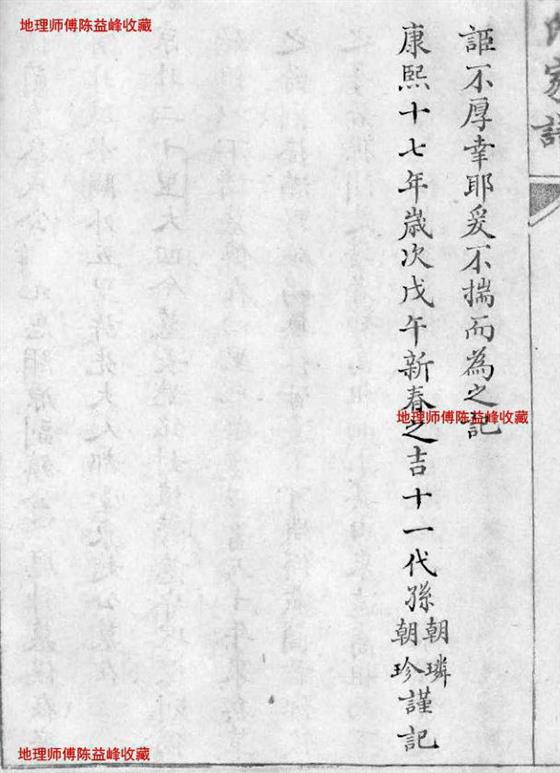 地理师傅陈益峰收藏
家譜
詎不厚幸耶爰不揣而為之記
康熙十七年歲次戊午新春之吉十一代孫朝璘朝珍謹記
地理师傅陈益峰收藏
地理师傅陈益峰收藏